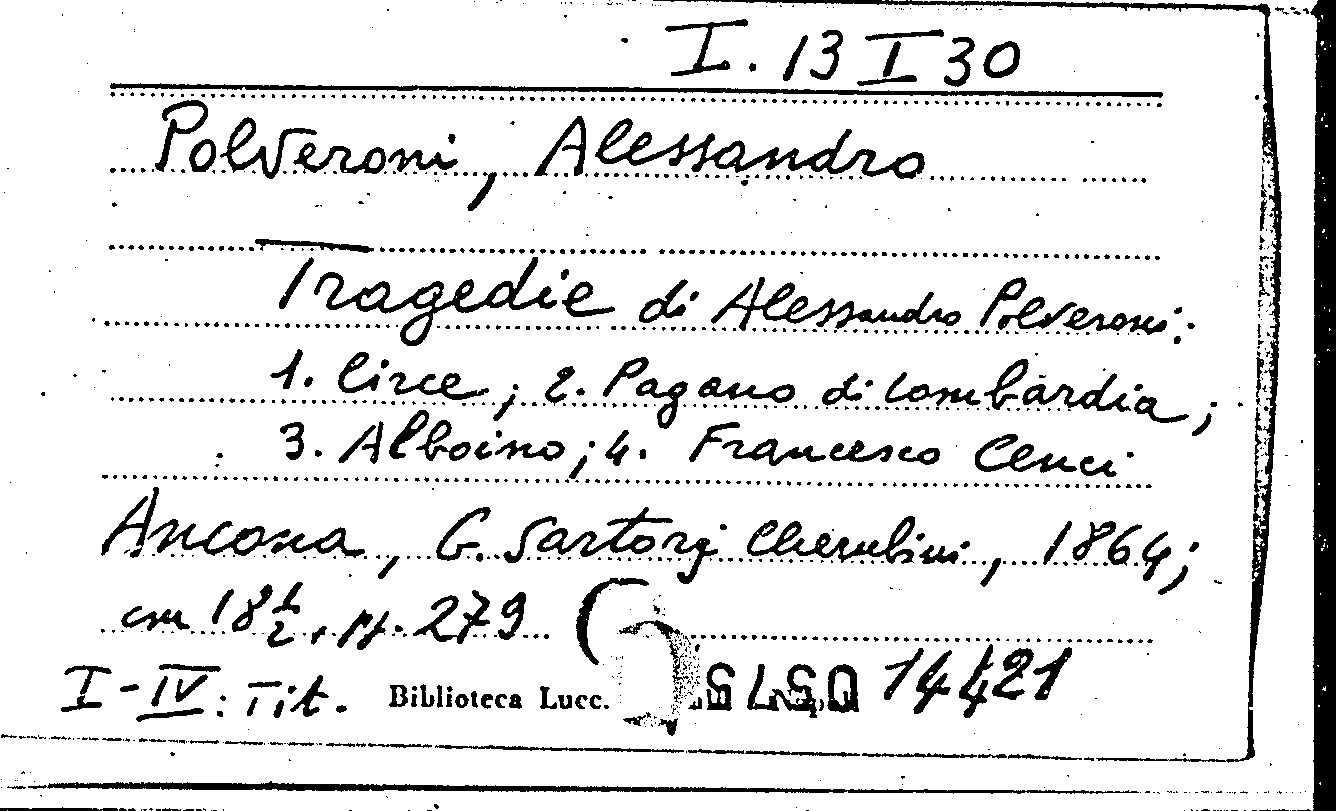 I. 13 I 30
Polveroni, Alessandro
Tragedie di Alessandro Polveroni:
1. Circe; 2. Pagano di Lombardia;
3. Alboino; 4. Francesco Cenci
Ancona, G. Sartorj Cherubini, 1864;
cm 18 1/2, pp. 279
I-IV: Tit. Biblioteca Lucc. 14421